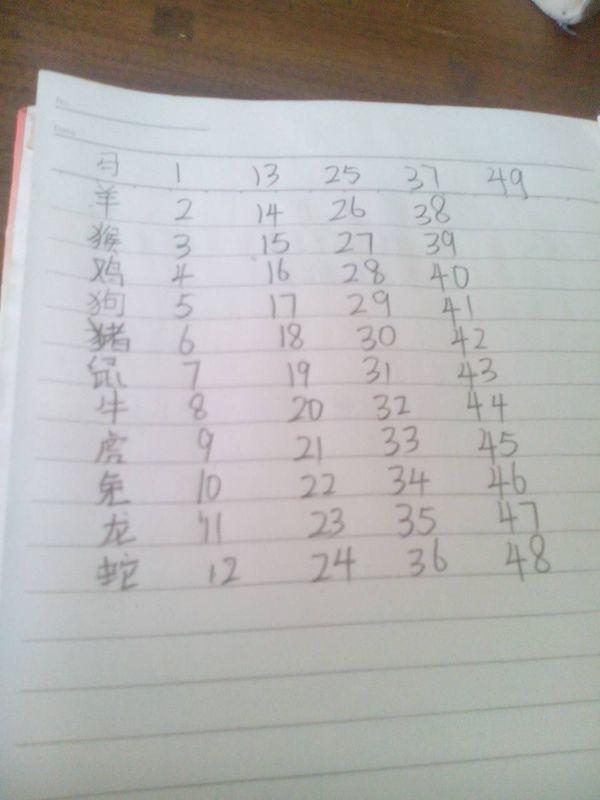 No.
Date
马 1 13 25 37 49
羊 2 14 26 38
猴 3 15 27 39
鸡 4 16 28 40
狗 5 17 29 41
猪 6 18 30 42
鼠 7 19 31 43
牛 8 20 32 44
虎 9 21 33 45
兔 10 22 34 46
龙 11 23 35 47
蛇 12 24 36 48